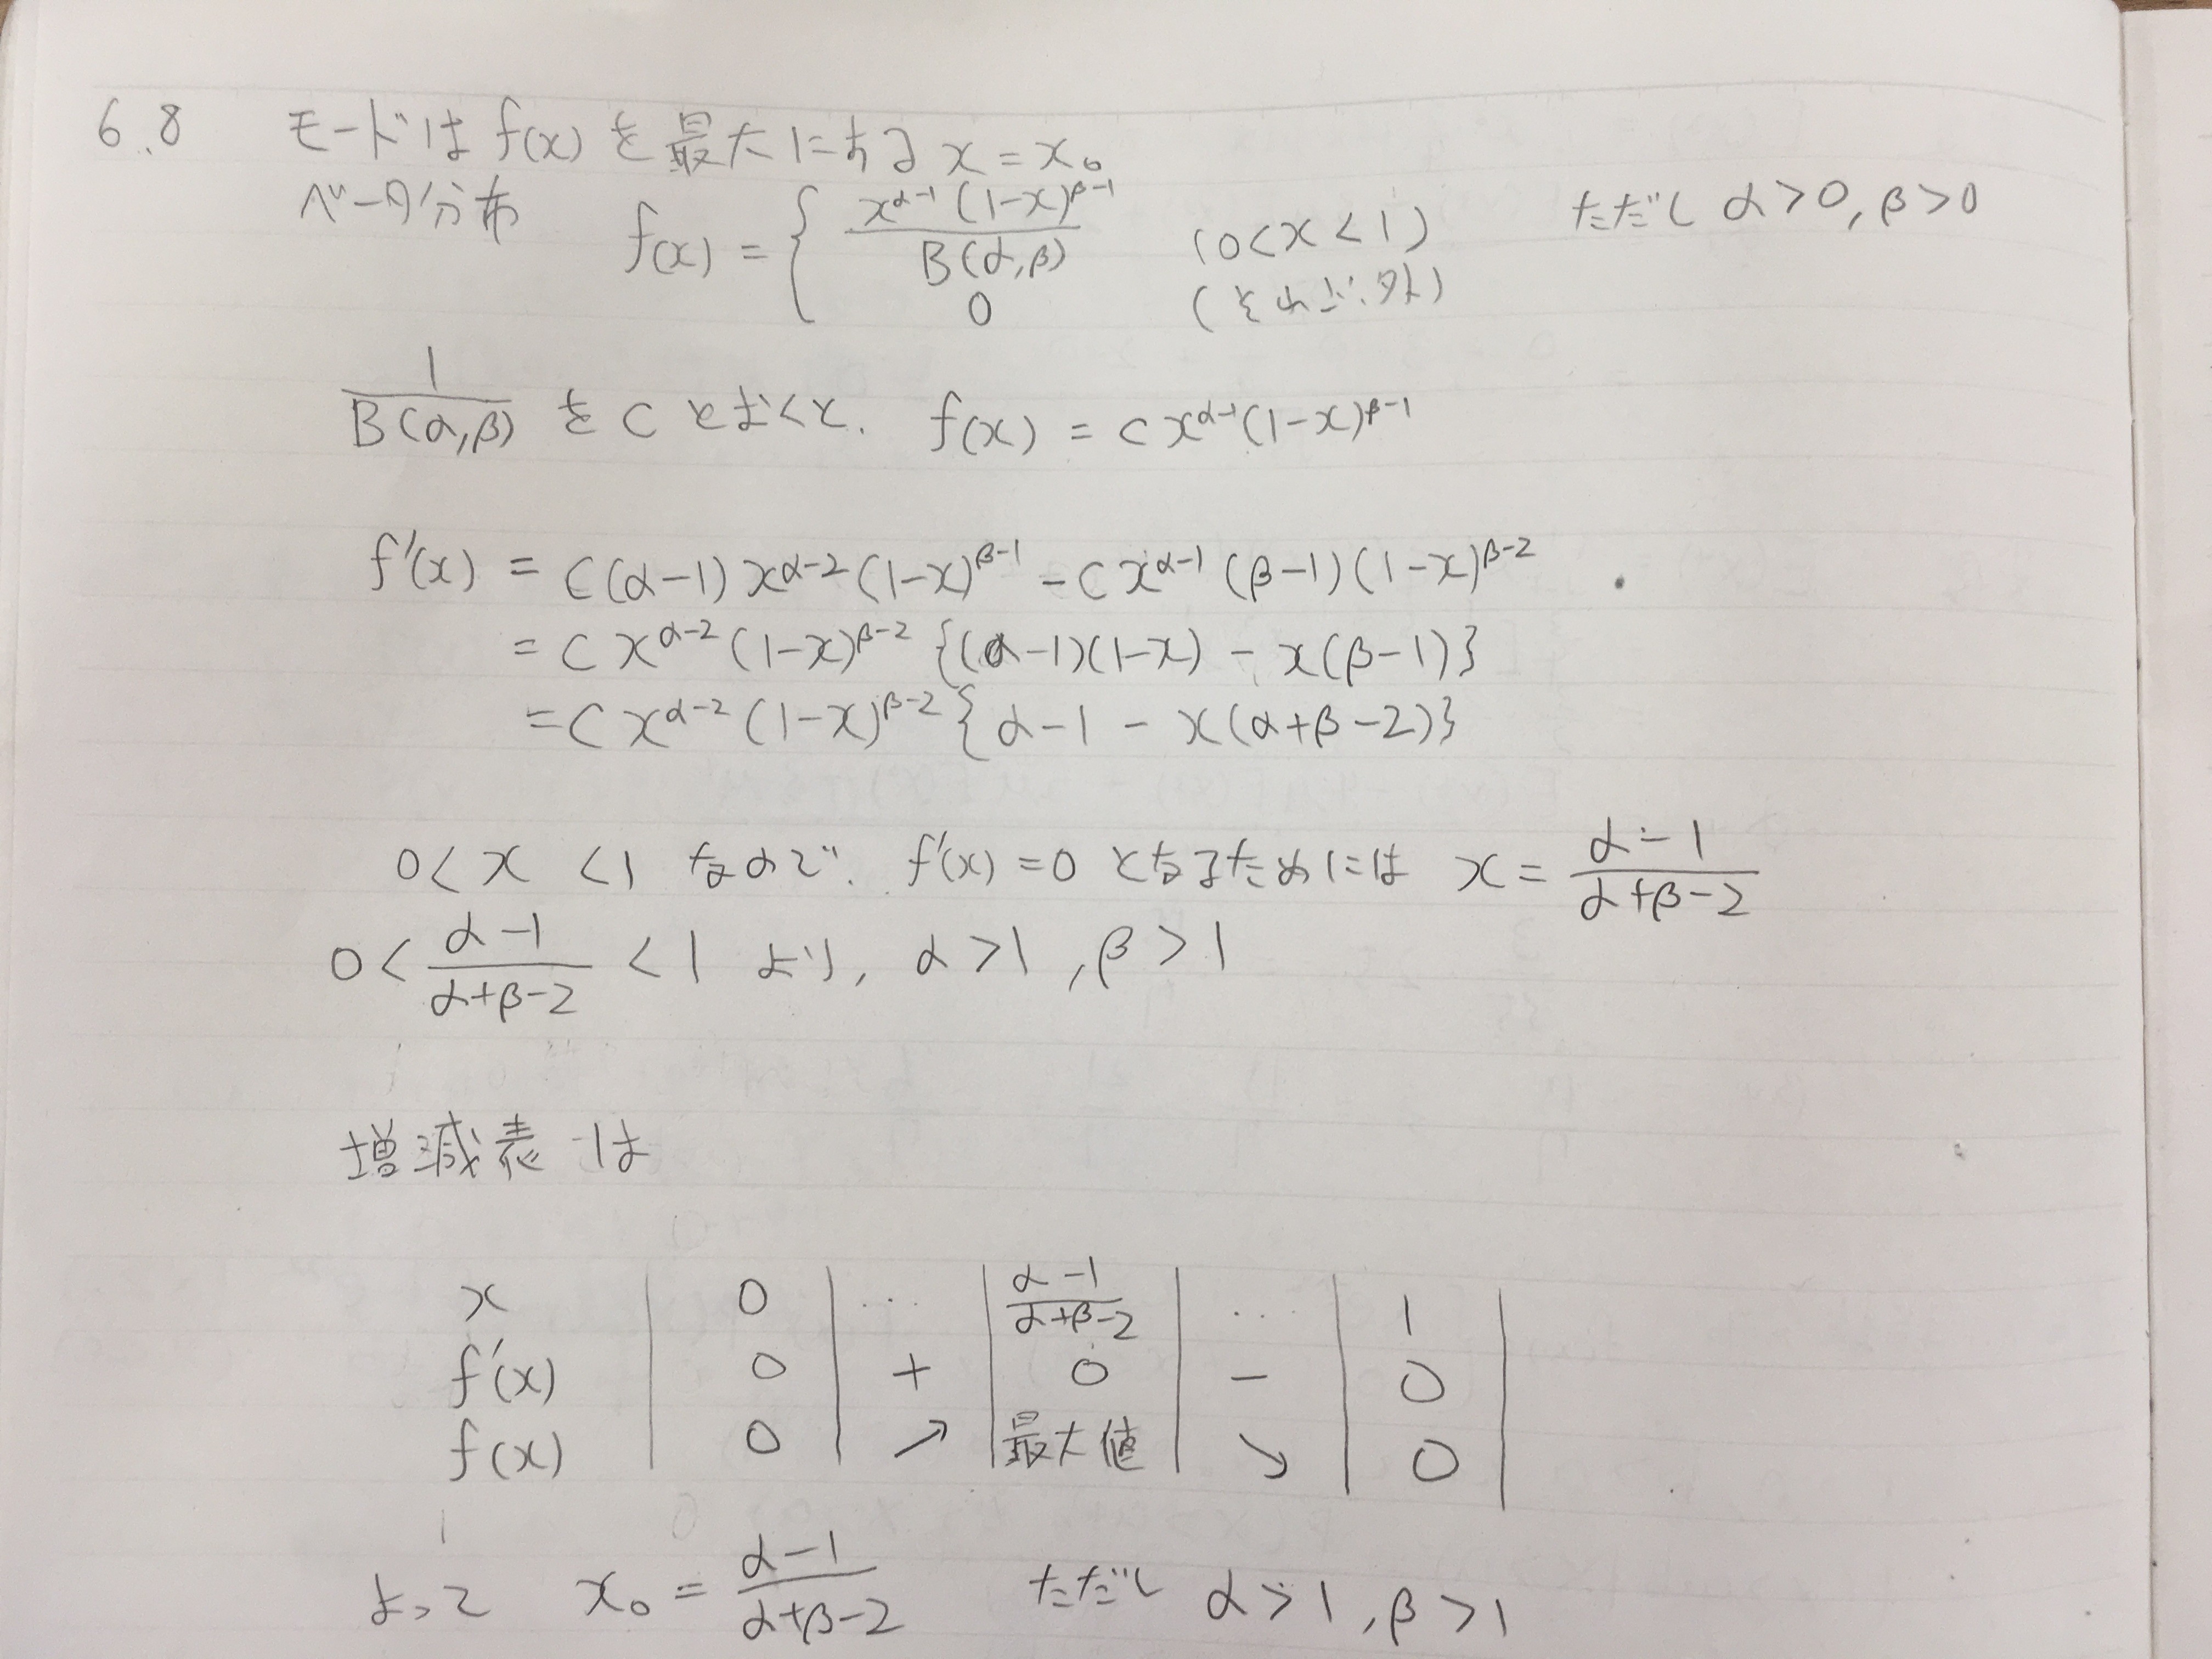 6.8 モードは f(x) を最大にする x = x₀
ベータ分布 f(x) = { x^{α-1} (1-x)^{β-1} / B(α,β) (0<x<1) ただし α>0, β>0
0 (それ以外)
1/B(α,β) を C とおくと、 f(x) = C x^{α-1} (1-x)^{β-1}
f'(x) = C(α-1) x^{α-2} (1-x)^{β-1} - C x^{α-1} (β-1) (1-x)^{β-2}
= C x^{α-2} (1-x)^{β-2} {(α-1)(1-x) - x(β-1)}
= C x^{α-2} (1-x)^{β-2} {α-1 - x(α+β-2)}
0 < x < 1 なので、 f'(x) = 0 となるためには x = (α-1)/(α+β-2)
0 < (α-1)/(α+β-2) < 1 より, α>1, β>1
増減表は
x | 0 | … | (α-1)/(α+β-2) | … | 1 |
f'(x) | 0 | + | 0 | - | 0 |
f(x) | 0 | ↗ | 最大値 | ↘ | 0 |
よって x₀ = (α-1)/(α+β-2) ただし α>1, β>1